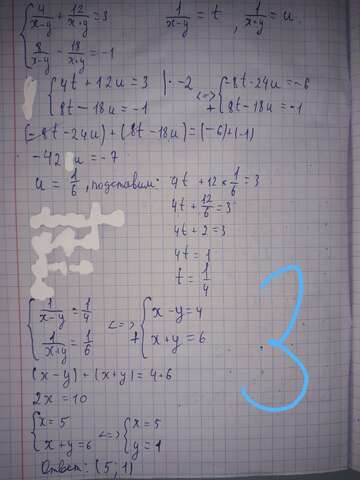 {4/(x-y) + 12/(x+y) = 3    1/(x-y) = t , 1/(x+y) = u.
{8/(x-y) - 18/(x+y) = -1
{4t + 12u = 3 | · -2 <=> {-8t - 24u = -6
{8t - 18u = -1 + {8t - 18u = -1
(-8t - 24u) + (8t - 18u) = (-6) + (-1)
-42 u = -7
u = 1/6, подставим: 4t + 12 × 1/6 = 3
4t + 12/6 = 3
4t + 2 = 3
4t = 1
t = 1/4
{1/(x-y) = 1/4 <=> {x - y = 4
{1/(x+y) = 1/6 + {x + y = 6
(x - y) + (x + y) = 4 + 6
2x = 10
{x = 5 <=> {x = 5
{x + y = 6 {y = 1
Ответ: (5; 1)
3